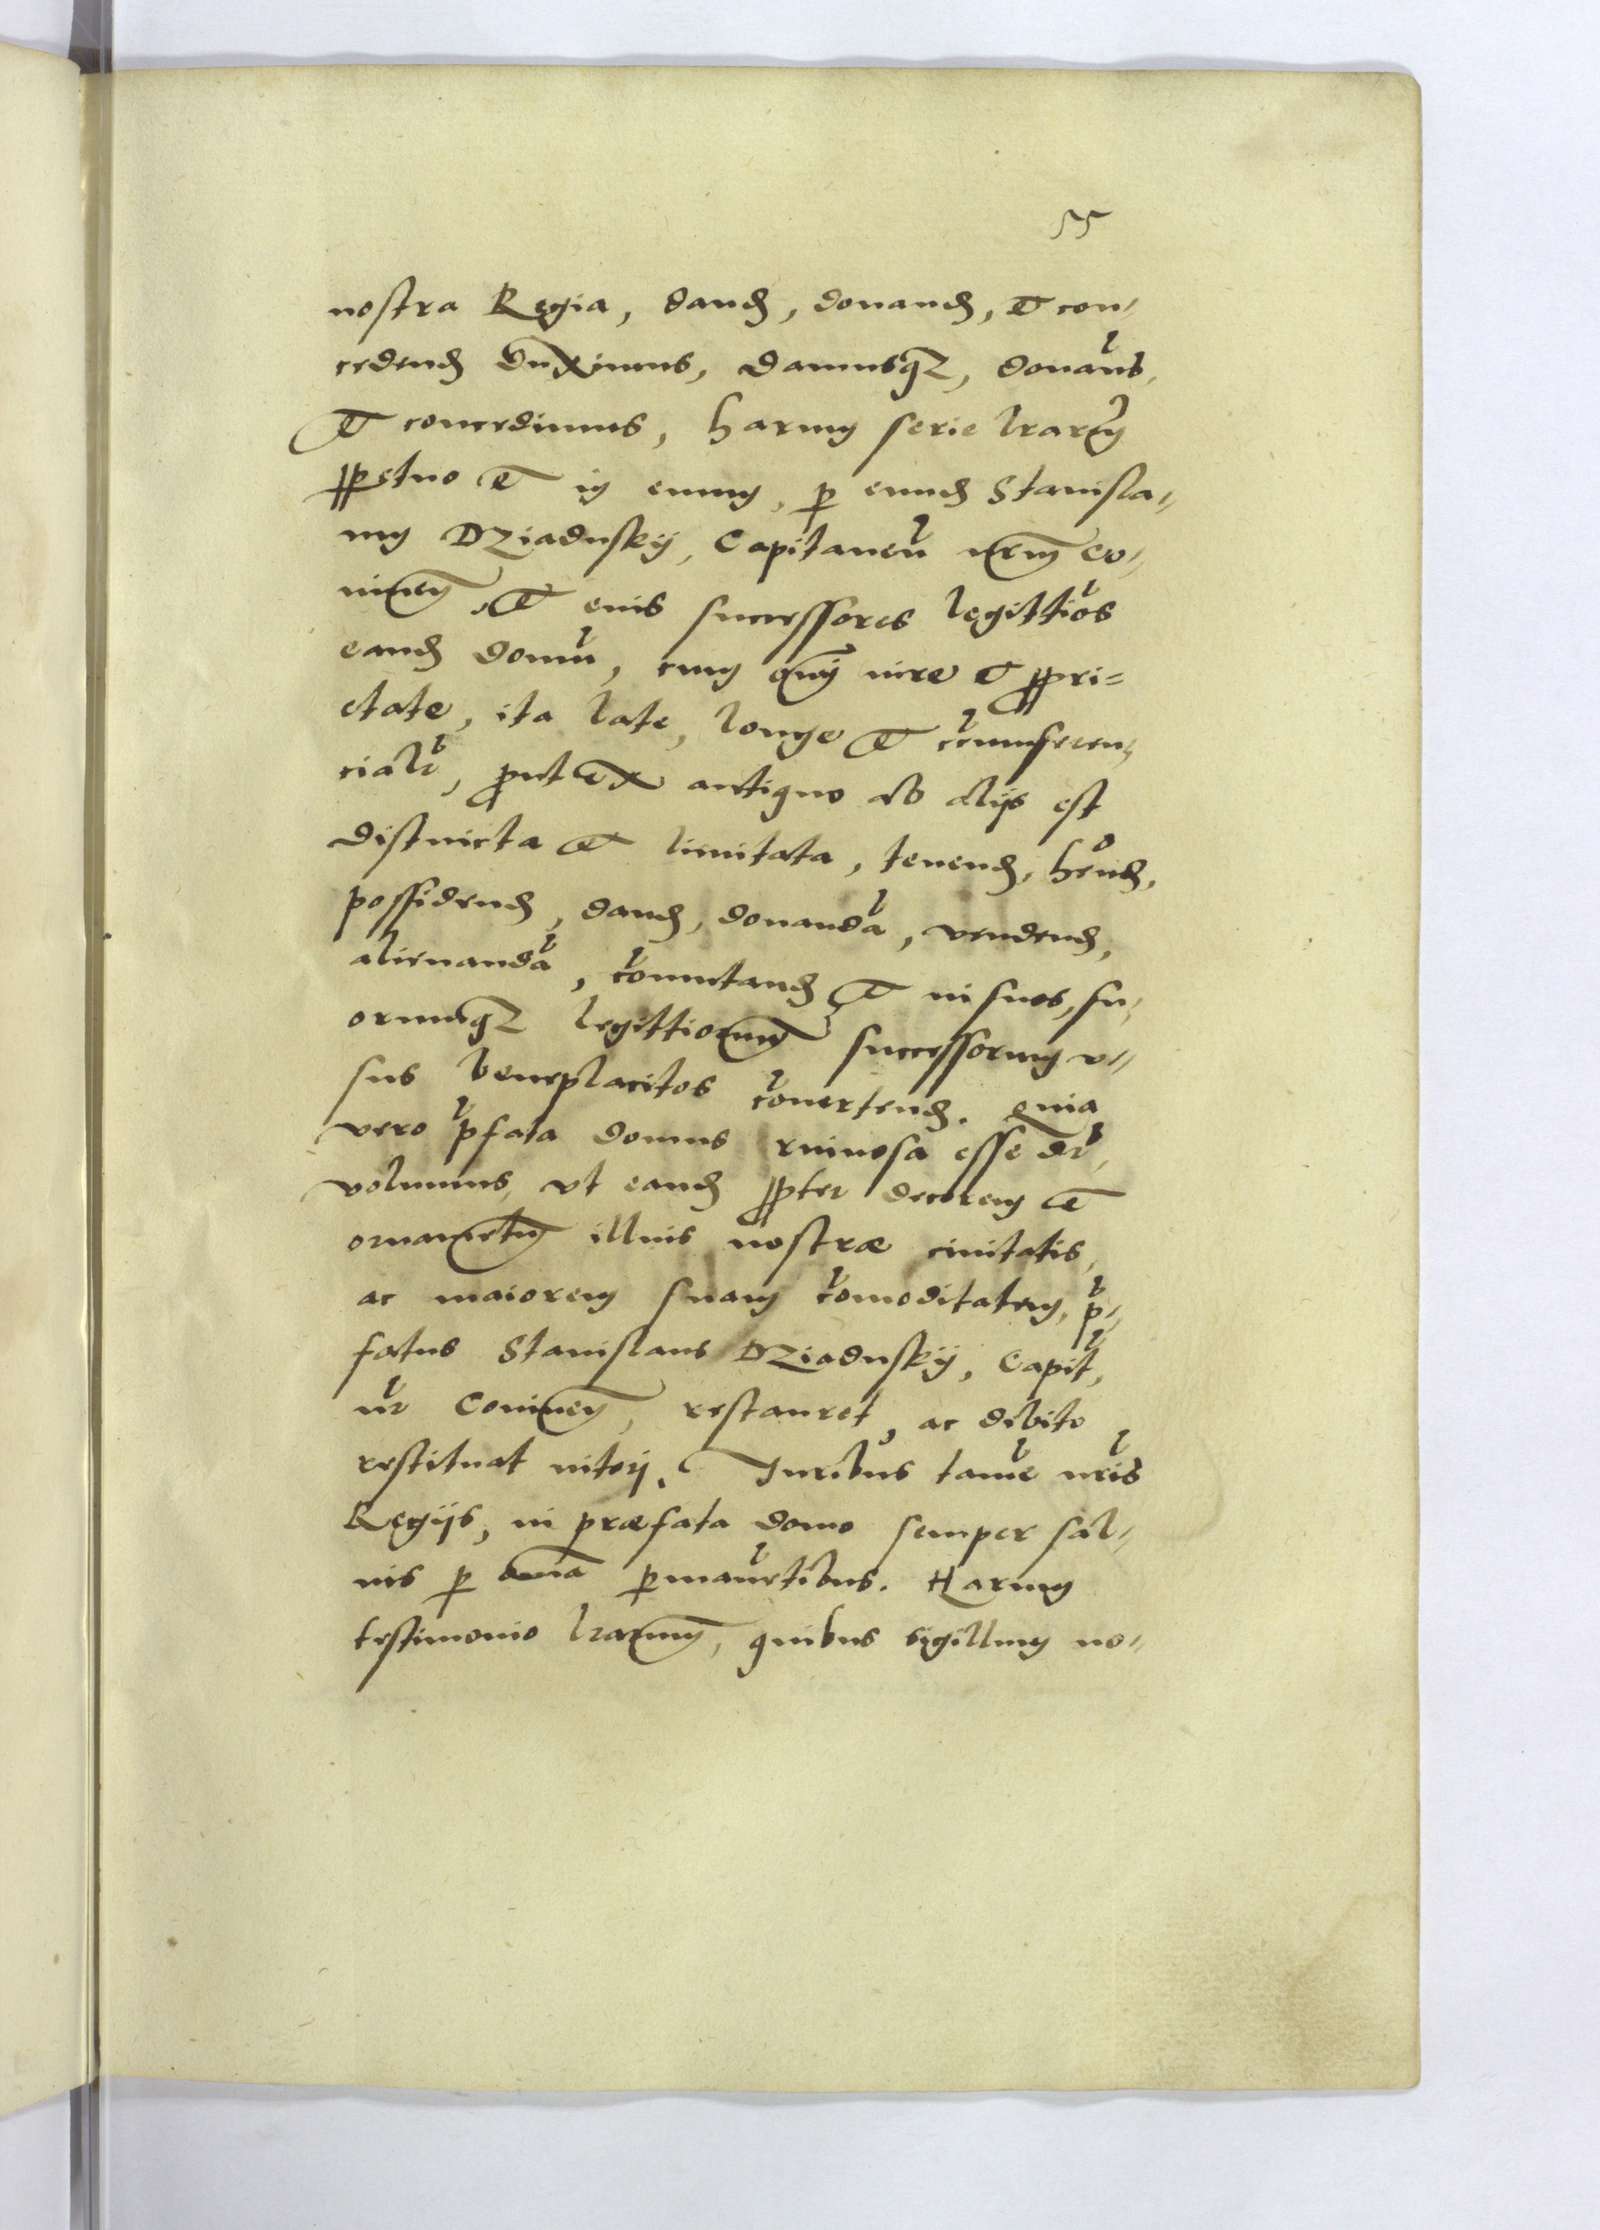 55
nostra Regia, dand, donand, et con„
cedend duximus, damusqz, donaus,
et concedimus, harum serie lrarum
ppetuo et in euum, p eund Stanisla„
um Dziadusky, Capitaneu nrum Co„
ninen, et eius successores legittios
eand domu, cum omi iure et ppri=
etate, ita late, longe et circumferen„
cialr, put ex antiquo ab alijs est
distincta et limitata, tenend, hend,
possidend, dand, donanda, vendend,
alienanda, comutand et in suos, su„
orumqz legittiorum successorum v„
sus beneplacitos couertend. Quia
vero pfata domus ruinosa esse dr,
volumus, vt eand ppter decorem et
ornametum illius nostræ ciuitatis,
ac maiorem suam comoditatem, p„
fatus Stanislaus Dziadusky, Capit,
nr Coninen, restauret, ac debito
restituat nitori. Iuribus tame nris
Regijs, in præfata domo semper sal„
uis p omia pmanetibus. Harum
testimonio lrarum, quibus sigillum no„